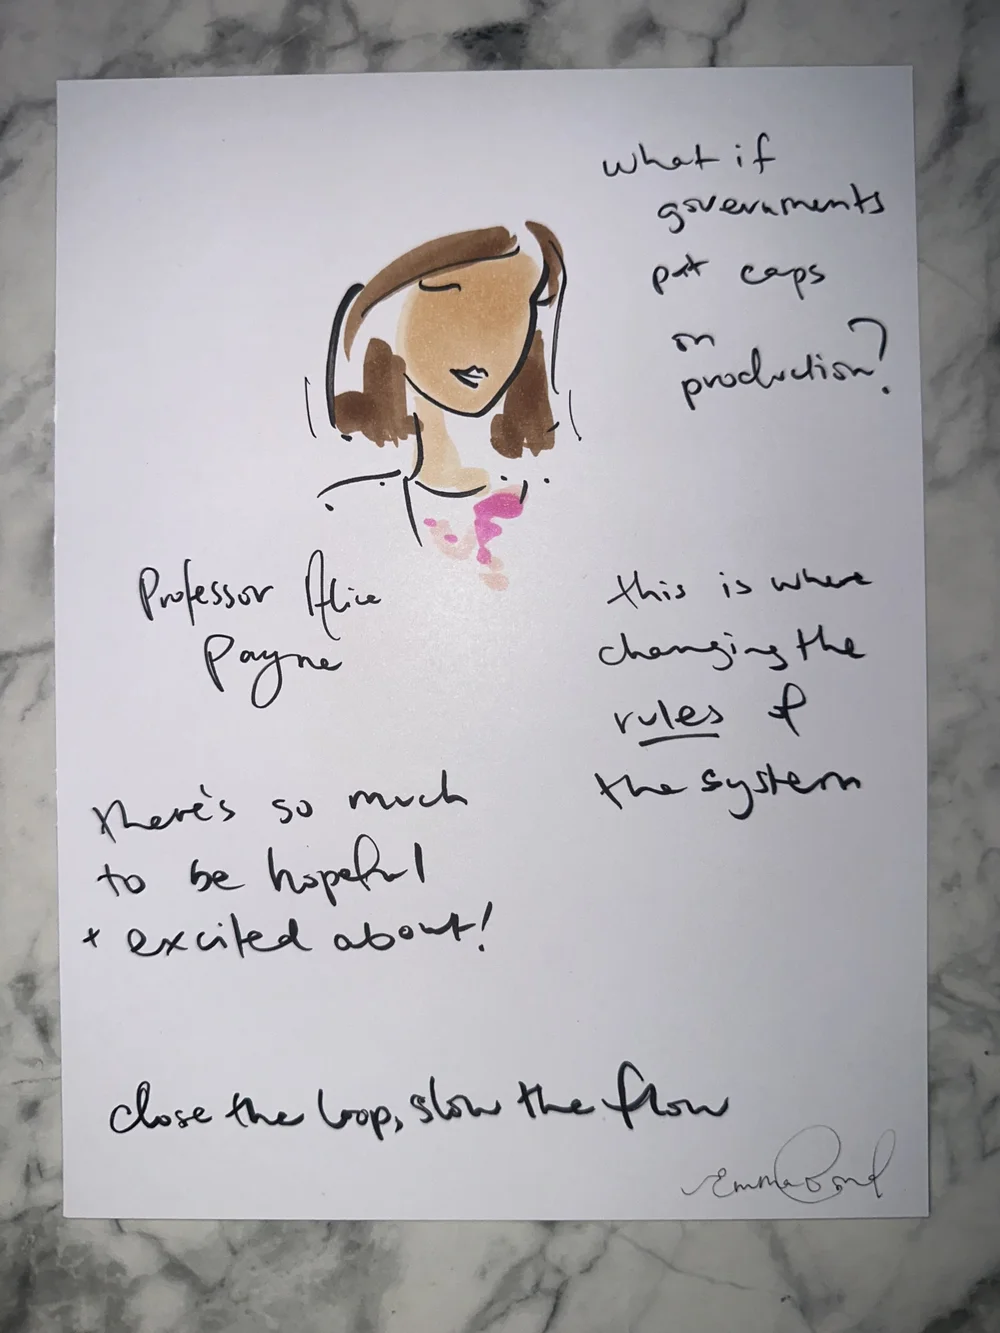 what if
governments
put caps
on
production?
Professor Alice
Payne
this is where
changing the
rules of
the system
there's so much
to be hopeful
+ excited about!
close the loop, slow the flow
Emma Bond